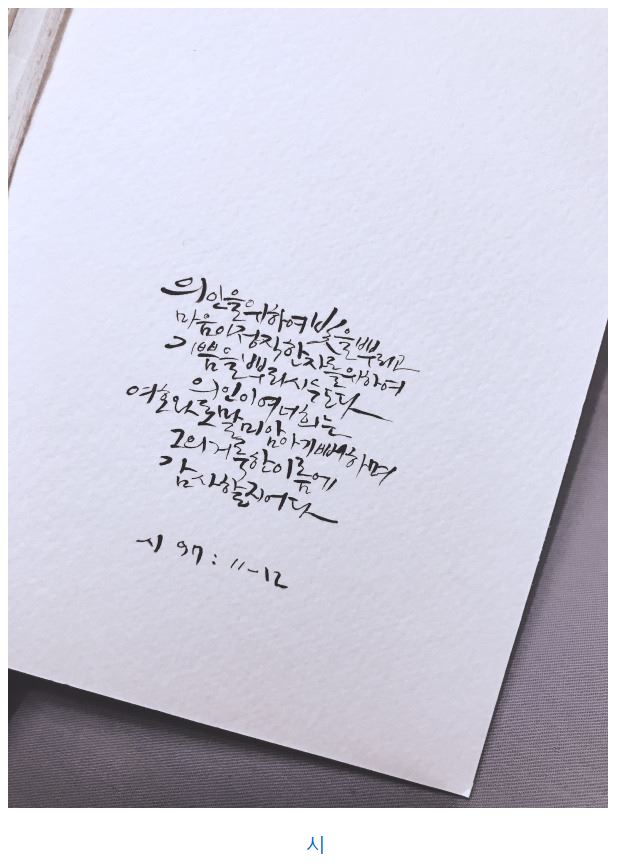 의인을위하여빛을뿌리고
마음이정직한자를위하여
기쁨을뿌리시는도다
의인이여너희는
여호와로말미암아기뻐하며
그의거룩한이름에
감사할지어다
시 97 : 11-12
시